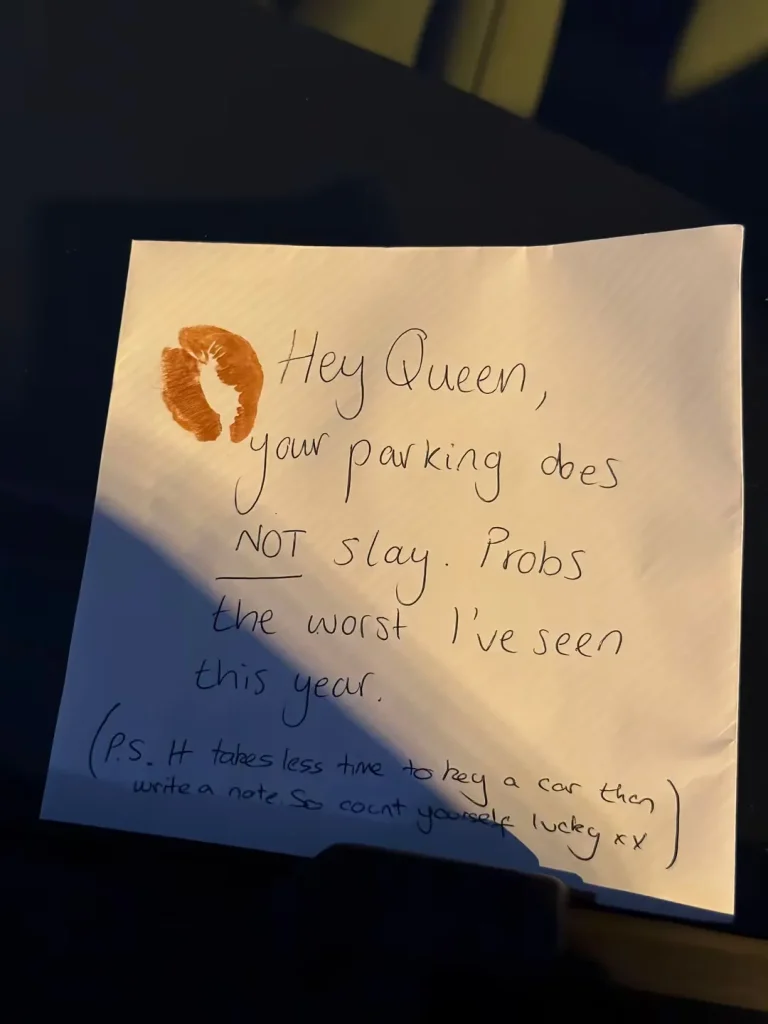 Hey Queen,
your parking does
NOT slay. Probs
the worst I've seen
this year.
(P.S. It takes less time to key a car then
write a note. So count yourself lucky xx)